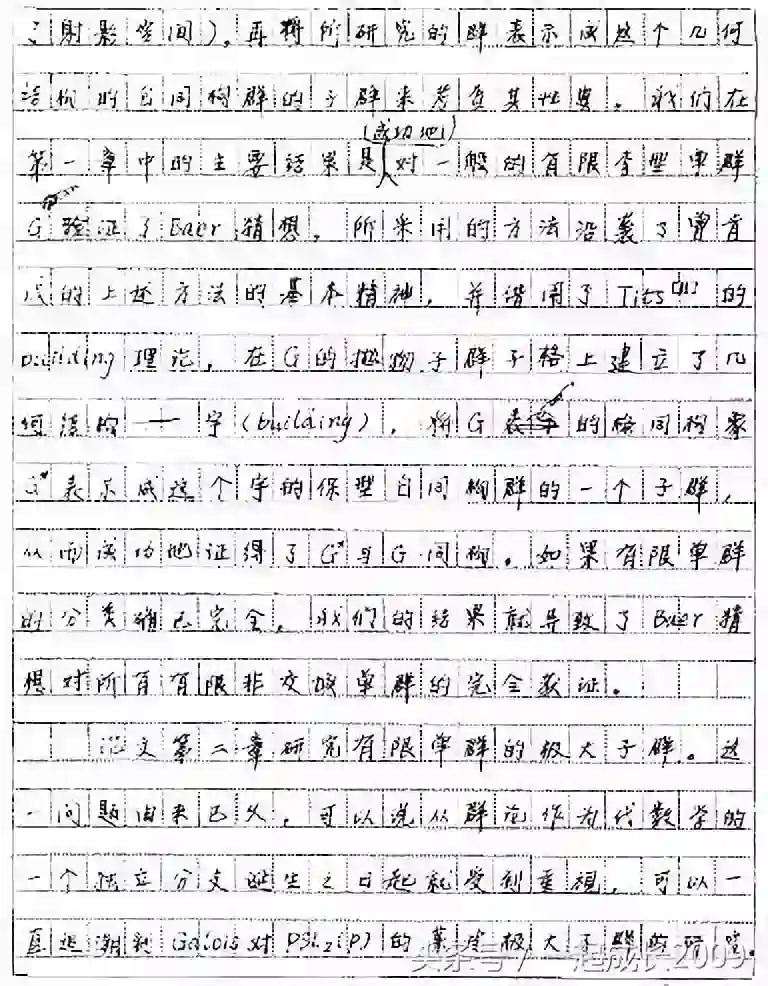 射影空间），再将所研究的群表示成这个几何
结构的自同构群的子群来考查其性质。我们在
(成功地)
第一章中的主要结果是对一般的有限李型单群
G验证了Baer猜想，所采用的方法沿袭了曾肯
成的上述方法的基本精神，并借用了Tits[11]的
building理论，在G的抛物子群子格上建立了几
何结构——宇（building），将G的格同构象
G*表示成这个宇的保型自同构群的一个子群，
从而成功地证得了G*与G同构。如果有限单群
的分类确已完全，我们的结果就导致了Baer猜
想对所有有限非交换单群的完全获证。
论文第二章研究有限单群的极大子群。这
一问题由来已久，可以说从群论作为代数学的
一个独立分支诞生之日起就受到重视，可以一
直追溯到Galois对PSL₂(P)的某类极大子群的研究。
头条号 / 一起成长2009